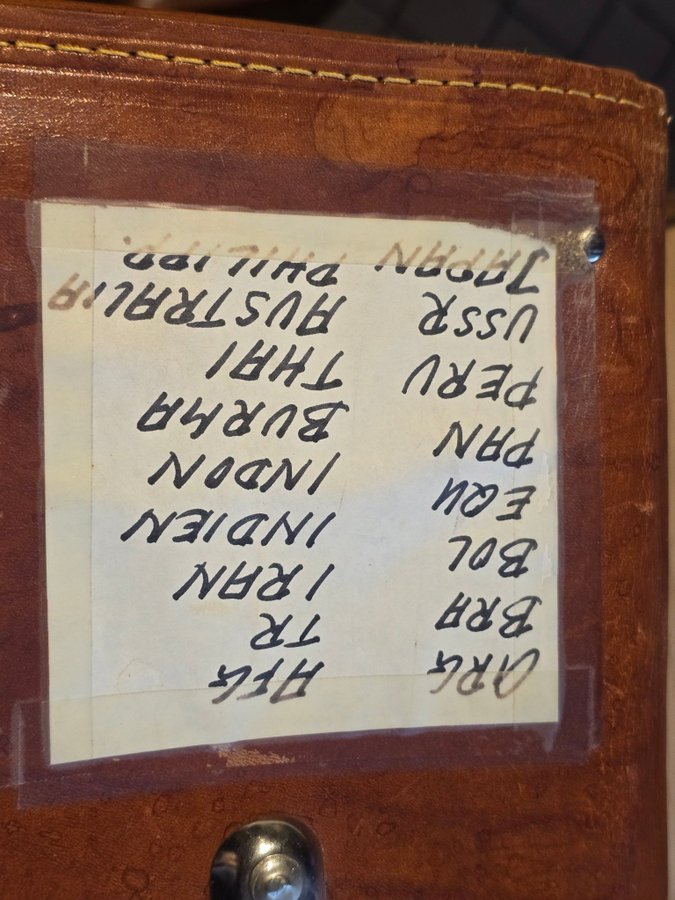 ARG
BRA
BOL
EQU
PAN
PERU
USSR
JAPAN
AFG
TR
IRAN
INDIEN
INDON
BURMA
THAI
AUSTRALIA
PHILIPP.